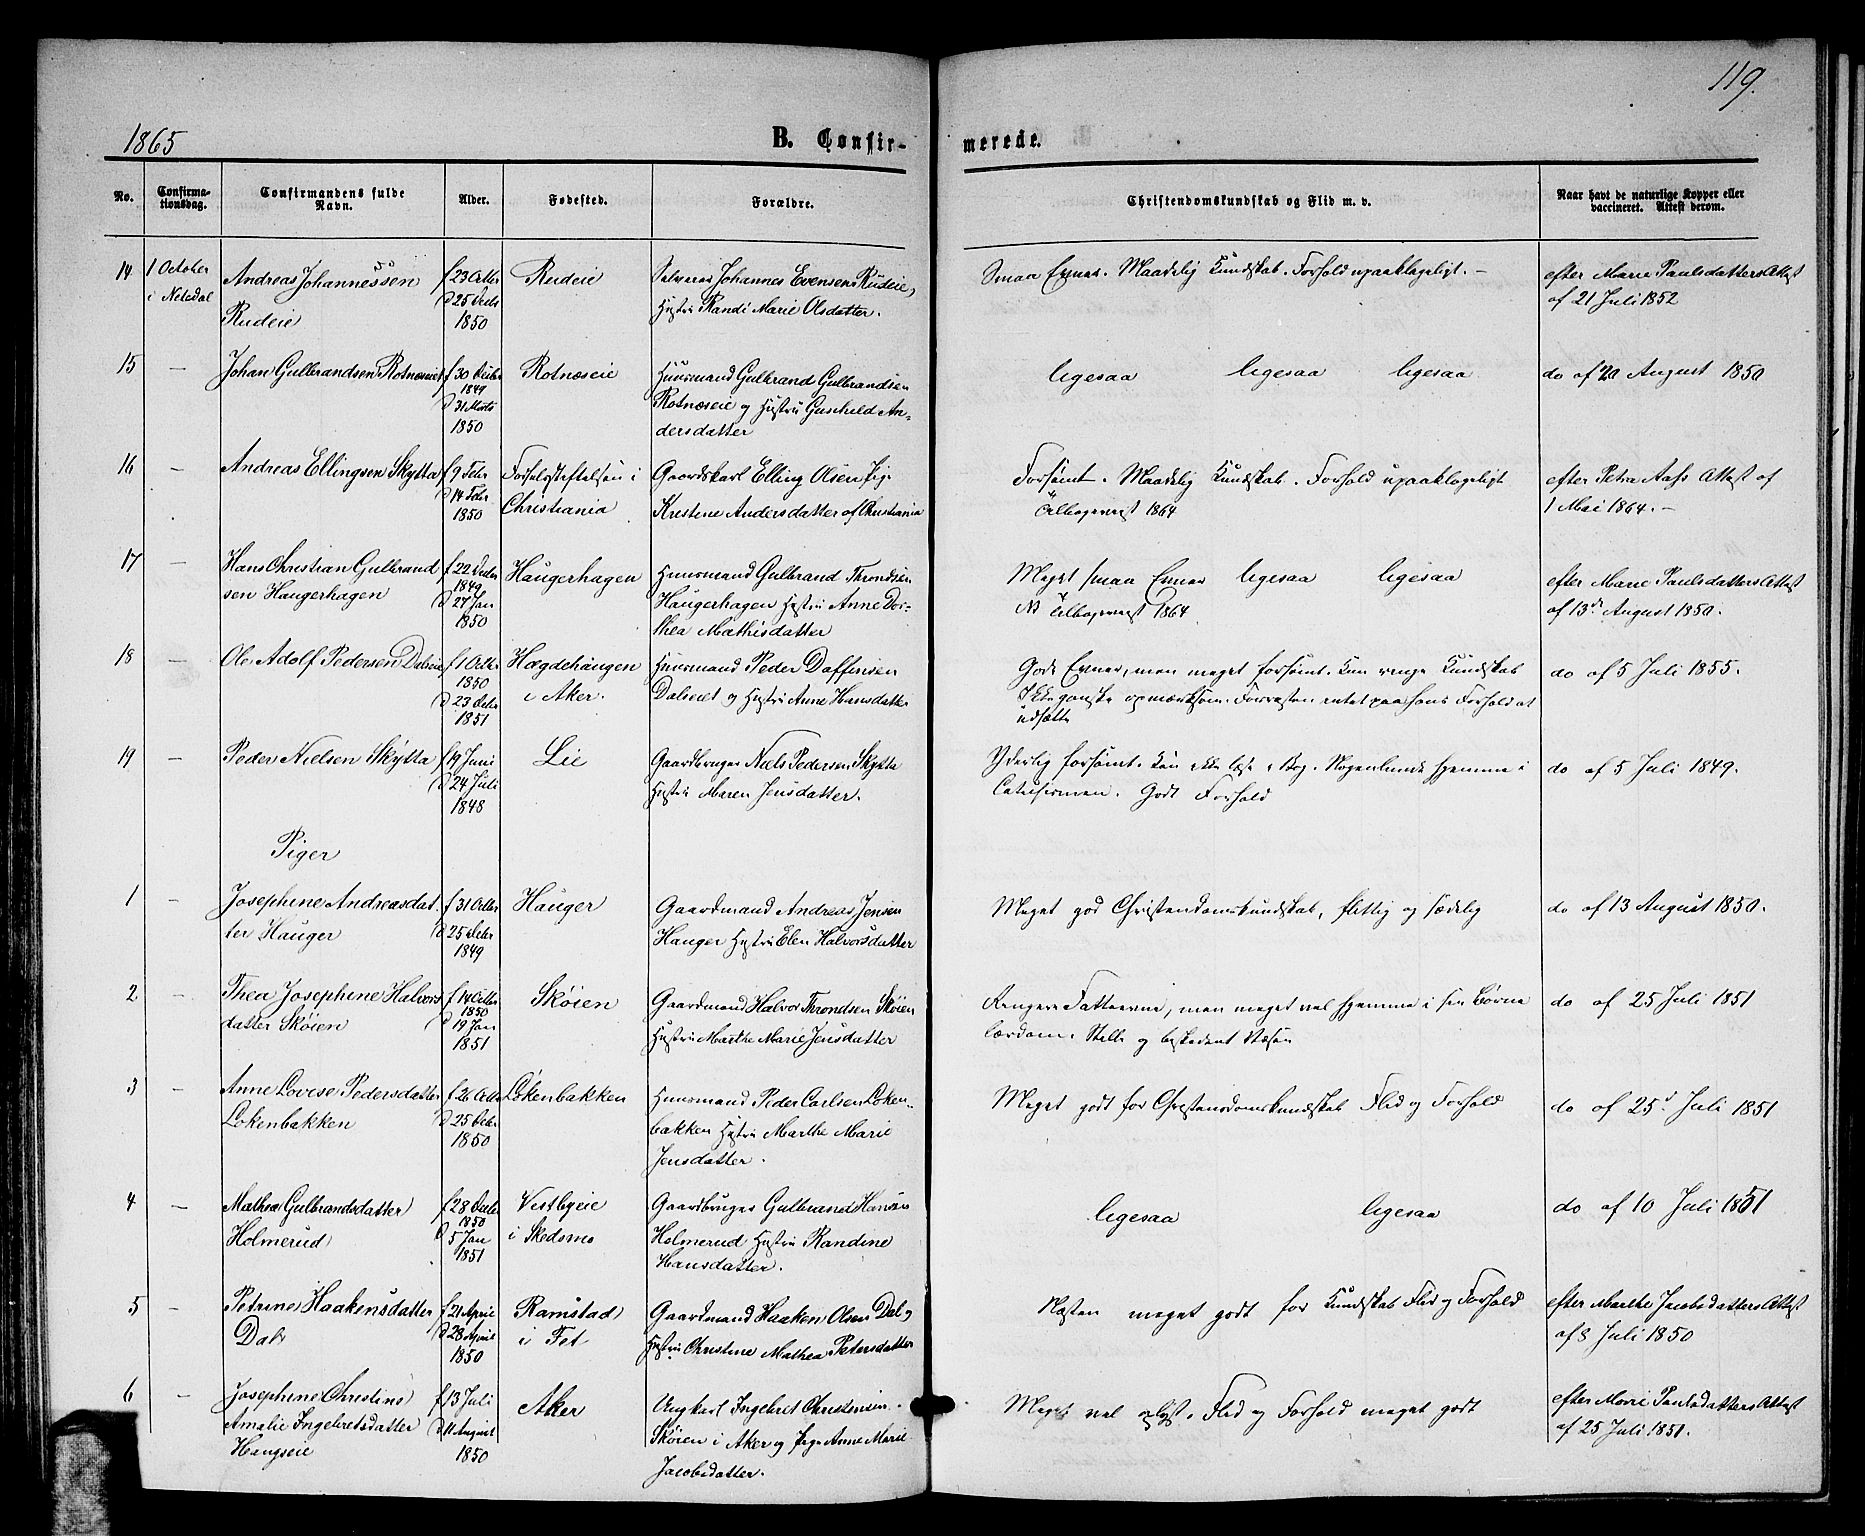 119.
1865
B. Confir-
merede.
No.
Confirma-
tionsdag.
Confirmandens fulde
Navn.
Alder.
Fødested.
Forældre.
Christendomskundskab og Flid m. v.
Naar havt de naturlige Kopper eller
vaccineret. Attest derom.
14
1 October
i Nitedal
Andreas Johannessen
Rudeie
f 23 Octbr
d 25 Decbr
1850
Rudeie
Selveier Johannes Evensen Rudeie,
Hustru Randi Marie Olsdatter.
Smaa Evner. Maadelig Kundskab. Forhold upaaklageligt. —
efter Marie Paulsdatters Attest
af 21 Juli 1852
15
—
Johan Gulbrandsen Rotnæseiet
f 30 Decbr
1849
d 31 Marts
1850
Rotnæseie
Huusmand Gulbrand Gulbrandsen
Rotnæseie og Hustru Gunhild An-
dersdatter
ligesaa ligesaa ligesaa
do af 20 August 1850
16
—
Andreas Ellingsen Skytta
f 9 Febr
d 14 Febr
1850
Fødselsstiftelsen i
Christiania
Gaardskarl Elling Olsen Pige
Kristine Andersdatter af Christiania
Forsømt. Maadelig Kundskab. Forhold upaaklageligt
Tilbageviist 1864
efter Petra Aass Attest af
1 Mai 1864. —
17
—
Hans Christian Gulbrand
sen Haugerhagen
f 22 Decbr
1849
d 27 Jan
1850
Haugerhagen
Huusmand Gulbrand Throndsen
Haugerhagen Hustru Anne Dor-
thea Mathisdatter
Meget smaa Evner ligesaa ligesaa
NB Tilbageviist 1864
efter Marie Paulsdatters Attest
af 13de August 1850.
18
—
Ole Adolf Pedersen Dalseie
f 1 Octbr
1850
d 23 Octbr
1851
Hægdehaugen
i Aker.
Huusmand Peder
Dalseiet og Hustru Anne Hansdatter
Gode Evner, men meget forsømt. Kun ringe Kundskab
Ikke ganske opmærksom. Forresten intet paa hans Forhold at
udsætte
do af 5 Juli 1855.
19
—
Peder Nielsen Skytta
f 19 Juni
d 24 Juli
1848
Lie
Gaardbruger Niels Pedersen Skytta
Hustru Maren Jensdatter.
Yderlig forsømt. Kan ikke læse i Bog. Nogenlunde hjemme i
Catechismen. Godt Forhold
do af 5 Juli 1849.
Piger
1
—
Josephine Andreasdat
ter Hauger
f 31 Octbr
d 25 Decbr
1849
Hauger
Gaardmand Andreas Jensen
Hauger Hustru Elen Halvorsdatter
Meget god Christendomskundskab, flittig og sædelig
do af 13 August 1850.
2
—
Thea Josephine Halvors
datter Skøien
f 14 Octbr
1850
d 19 Jan
1851
Skøien
Gaardmand Halvor Throndsen Skøien
Hustru Marthe Marie Jensdatter
Ringere Fatteevne, men meget vel hjemme i sin Børne
lærdom. Stille og beskedent Væsen
do af 25 Juli 1851
3
—
Anne Lovise Pedersdatter
Løkenbakken
f 26 Octbr
d 25 Decbr
1850
Løkenbakken
Huusmand Peder Carlsen Løken-
bakken Hustru Marthe Marie
Jensdatter.
Meget godt for Christendomskundskab Flid og Forhold
do af 25d Juli 1851
4
—
Mathea Gulbrandsdatter
Holmerud
f 28 Decbr
1850
d 5 Jan
1851
Vestbyeie
i Skedsmo
Gaardbruger Gulbrand Hansen
Holmerud Hustru Randine
Hansdatter.
ligesaa ligesaa
do af 10 Juli 1851
5
—
Petrine Haakensdatter
Dal
f 21 April
d 28 April
1850
Ramstad
i Fet
Gaardmand Haaken Olsen Dal og
Hustru Christine Mathea Petersdatter
Næsten meget godt for Kundskab Flid og Forhold
efter Marthe Jacobsdatters Attest
af 8 Juli 1850
6
—
Josephine Christine
Amalie Ingebretsdatter
Haugseie
f 13 Juli
d 11 August
1850
Aker
Ungkarl Ingebret Christensen
Skøien i Aker og Pige Anne Marie
Jacobsdatter.
Meget vel oplyst. Flid og Forhold meget godt
efter Marie Paulsdatters Attest
af 25 Juli 1851.